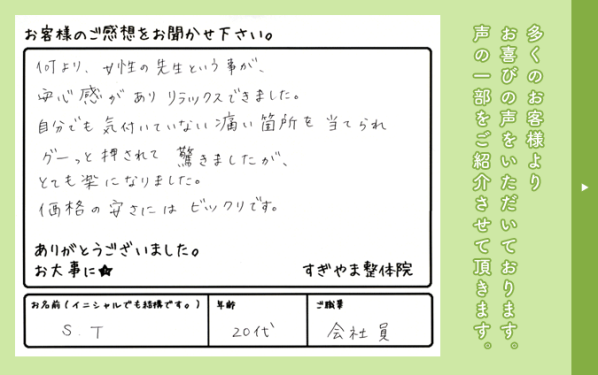 お客様のご感想をお聞かせ下さい。
何より、女性の先生という事が、
安心感がありリラックスできました。
自分でも気付いていない痛い箇所を当てられ
グーっと押されて驚きましたが、
とても楽になりました。
価格の安さにはビックリです。
ありがとうございました。
お大事に★
すぎやま整体院
お名前(イニシャルでも結構です。)
S.T
年齢
20代
ご職業
会社員
多くのお客様より
お喜びの声をいただいております。
声の一部をご紹介させて頂きます。